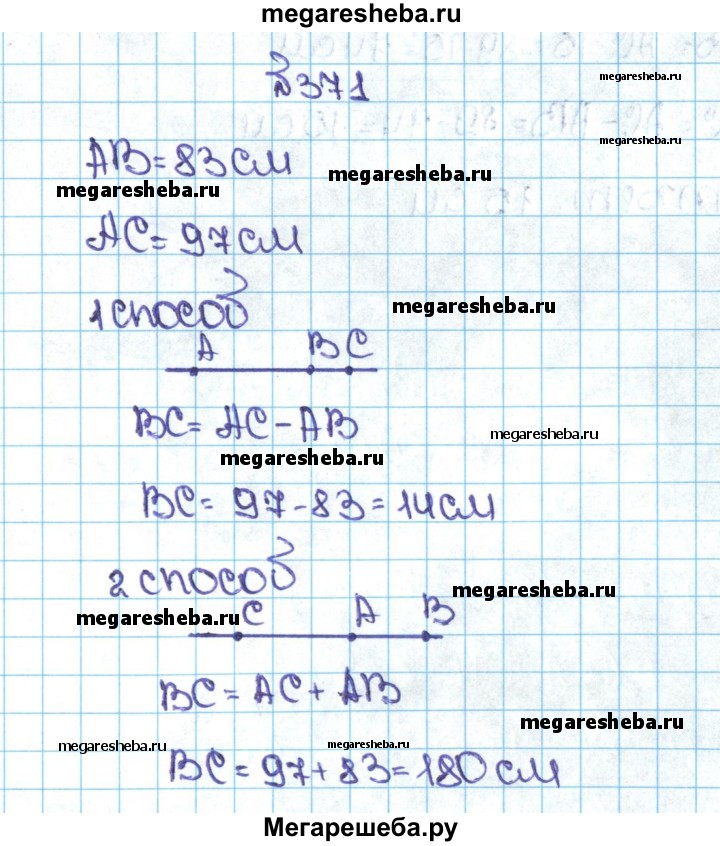 megaresheba.ru
№371
megaresheba.ru
megaresheba.ru
АВ=83см
megaresheba.ru
megaresheba.ru
АС=97см
1 способ
megaresheba.ru
А В С
ВС=АС-АВ
megaresheba.ru
megaresheba.ru
ВС=97-83=14см
2 способ
megaresheba.ru
megaresheba.ru
С А В
ВС=АС+АВ
megaresheba.ru
megaresheba.ru
megaresheba.ru
ВС=97+83=180см
Мегарешеба.ру